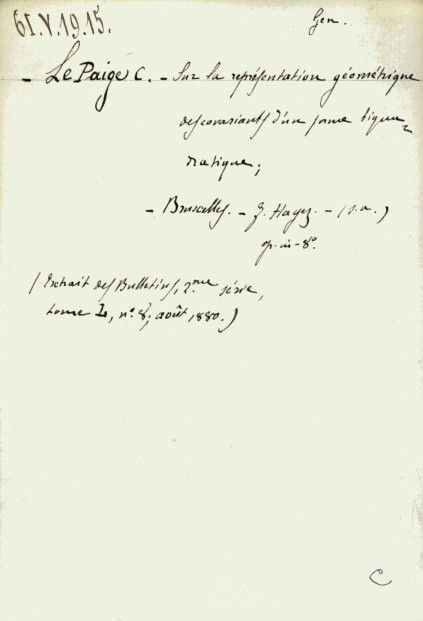 61.V.19.15.
Gen.
- Le Paige C. - Sur la représentation géométrique
des covariants d'un forme biqua=
dratique;
- Bruxelles. - F. Hayez. - (s.a.)
op. in-8°.
(Extrait des Bulletins, 2.me série,
tome L, n.° 8; août 1880.)
C